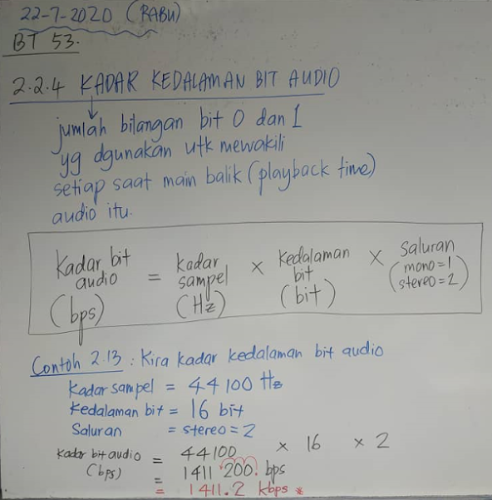 22-7-2020 (RABU)
BT 53.
2.2.4 KADAR KEDALAMAN BIT AUDIO
jumlah bilangan bit 0 dan 1
yg dgunakan utk mewakili
setiap saat main balik (playback time)
audio itu.
Kadar bit audio (bps) = kadar sampel (Hz) × kedalaman bit (bit) × saluran (mono=1 stereo=2)
Contoh 2.13 : Kira kadar kedalaman bit audio
Kadar sampel = 44100 Hz
Kedalaman bit = 16 bit
Saluran = stereo = 2
Kadar bit audio (bps) = 44100 × 16 × 2
= 1411 200. bps
= 1411.2 kbps *